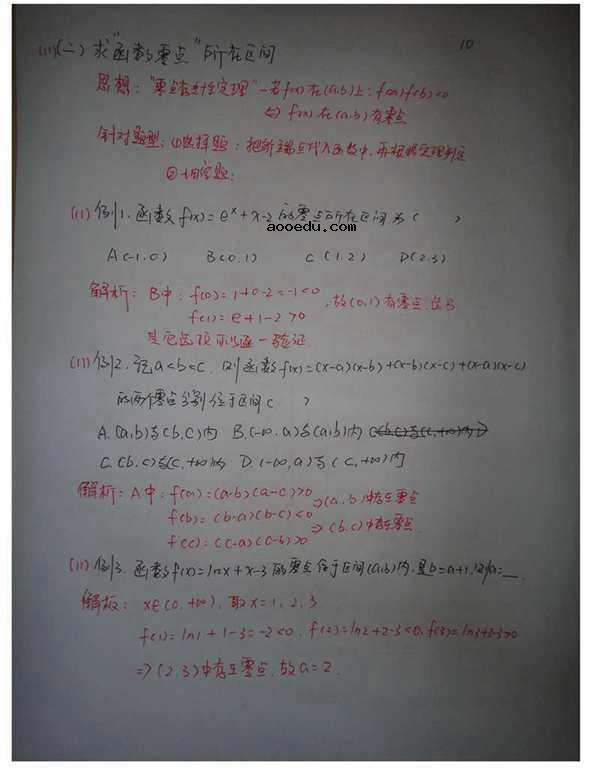 10
(11)(二) 求“函数零点”所在区间
思想: “零点存在性定理” - 若f(x)在(a,b)上: f(a)f(b)<0
⇔ f(x)在(a,b)有零点
针对题型: ①选择题: 把端点代入函数中,再根据定理判定
②填空题:
(11) 例1. 函数 f(x)=e^x+x-2 的零点所在区间为( )
aooedu.com
A(-1,0) B(0,1) C(1,2) D(2,3)
解析: B中: f(0)=1+0-2=-1<0
f(1)=e+1-2>0
,故(0,1)有零点,选B
其它选项可以逐一验证.
(11) 例2. 记a<b<c, 则函数f(x)=(x-a)(x-b)+(x-b)(x-c)+(x-a)(x-c)
的两个零点分别位于区间( )
A.(a,b)与(b,c)内 B.(-∞,a)与(a,b)内
C.(b,c)与(c,+∞)内 D.(-∞,a)与(c,+∞)内
解析: A中: f(a)=(a-b)(a-c)>0 ⇒(a,b)中存在零点
f(b)=(b-a)(b-c)<0
⇒(b,c)中存在零点.
f(c)=(c-a)(c-b)>0
(11) 例3. 函数f(x)=lnx+x-3的零点位于区间(a,b)内,且b=a+1,则a=__.
解析: x∈(0,+∞), 取x=1,2,3
f(1)=ln1+1-3=-2<0, f(2)=ln2+2-3<0, f(3)=ln3+3-3>0
⇒(2,3)中存在零点,故a=2.